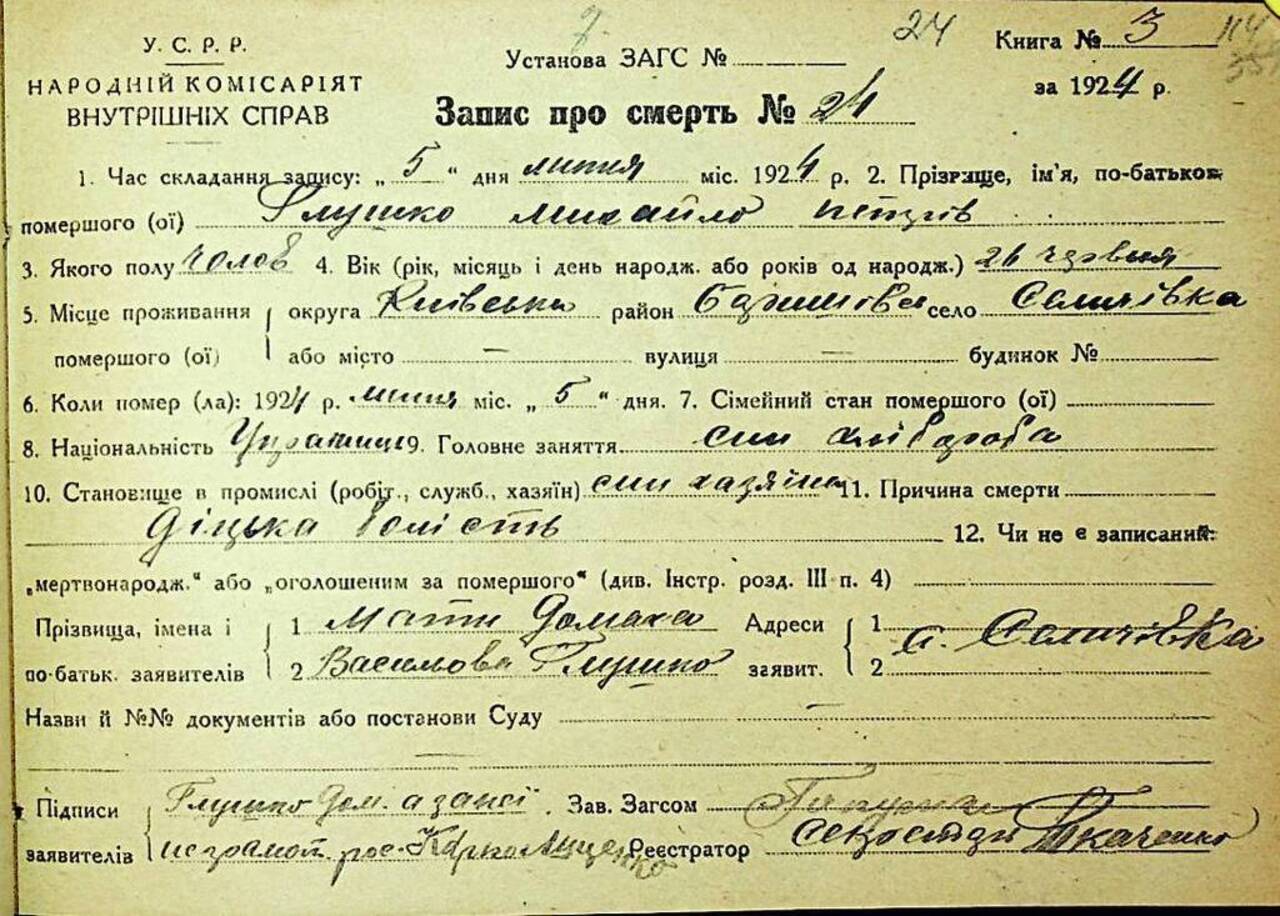 24
У. С. Р. Р.
НАРОДНІЙ КОМІСАРІЯТ
ВНУТРІШНІХ СПРАВ
Установа ЗАГС №
Книга № 3
за 1924 р.
Запис про смерть № 24
1. Час складання запису: „ 5 “ дня липня міс. 1924 р. 2. Прізвище, ім'я, по-батькові
помершого (ої) Глушко Михайло Петрів
3. Якого полу чолов 4. Вік (рік, місяць і день народж. або років од народж.) 26 червня
5. Місце проживання округа Київська район село Семичівка
помершого (ої) або місто — вулиця — будинок №
6. Коли помер (ла): 1924 р. липня міс. „ 5 “ дня. 7. Сімейний стан помершого (ої)
8. Національність Українц 9. Головне заняття син хлібороба
10. Становище в промислі (робіт., служб., хазяїн) син хазяїна 11. Причина смерти
Діцька болість 12. Чи не є записаний:
„мертвонародж.“ або „оголошеним за помершого“ (див. Інстр. розд. III п. 4)
Прізвища, імена і 1 Мати Домаха Адреси 1 с. Семичівка
по-батьк. заявителів 2 Василова Глушко заявит. 2
Назви й №№ документів або постанови Суду —
—
Підписи Глушко Дом. а за неї Зав. Загсом
заявителів неграмот. рос. Карпо Реєстратор Ткаченко